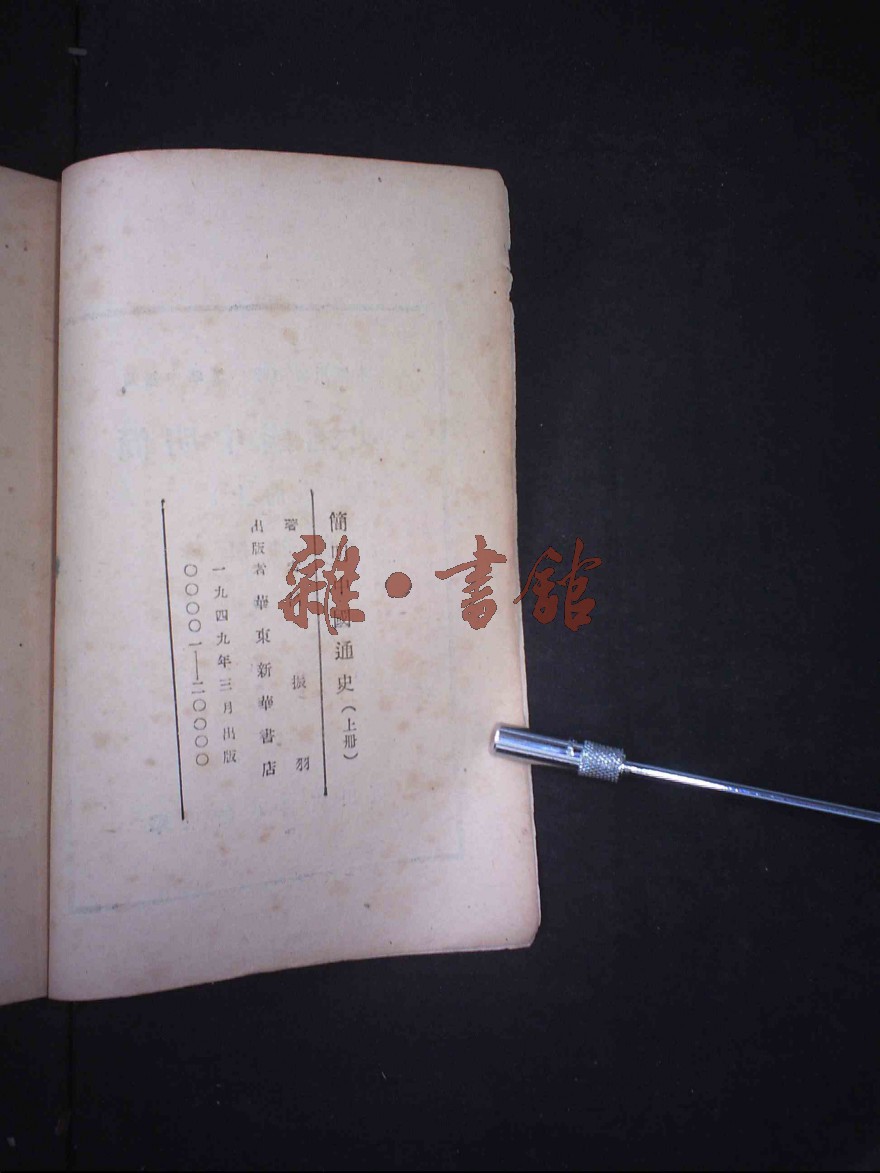 簡明中國通史（上册）
著 振羽
出版者 華東新華書店
一九四九年三月出版
〇〇〇〇一——二〇〇〇〇
雜·書館